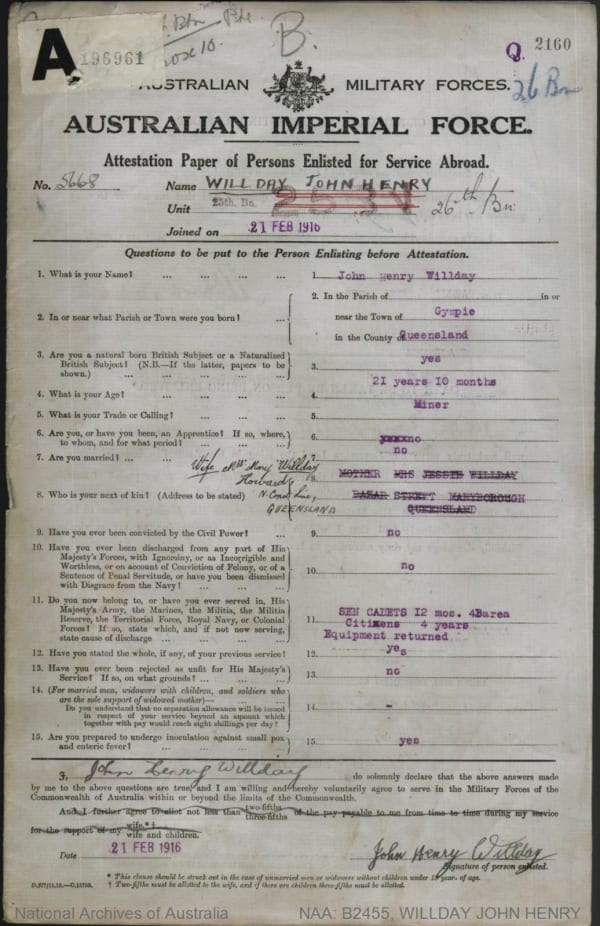 A
196961
Bn
B.
Q 2160
AUSTRALIAN MILITARY FORCES.
26 Bn
AUSTRALIAN IMPERIAL FORCE.
Attestation Paper of Persons Enlisted for Service Abroad.
No. 5668 Name WILLDAY JOHN HENRY
Unit 25th. Bn. 26th Bn
Joined on 21 FEB 1916
Questions to be put to the Person Enlisting before Attestation.
1. What is your Name? ... ... ... ... 1. John Henry Willday
2. In or near what Parish or Town were you born? ... 2. In the Parish of in or
near the Town of Gympie
in the County of Queensland
3. Are you a natural born British Subject or a Naturalized
British Subject? (N.B.—If the latter, papers to be
shown.) ... ... ... ... 3. yes
4. What is your Age? ... ... ... ... 4. 21 years 10 months
5. What is your Trade or Calling? ... ... ... 5. Miner
6. Are you, or have you been, an Apprentice? If so, where,
to whom, and for what period? ... ... ... 6. xxxxno
no
7. Are you married? ... ... 7.
Wife Mrs Mary Willday
Howard
N. Coast Line,
QUEENSLAND
8. Who is your next of kin? (Address to be stated) 8. MOTHER MRS JESSIE WILLDAY
BAZAR STREET MARYBOROUGH
QUEENSLAND
9. Have you ever been convicted by the Civil Power? ... 9. no
10. Have you ever been discharged from any part of His
Majesty's Forces, with Ignominy, or as Incorrigible and
Worthless, or on account of Conviction of Felony, or of a
Sentence of Penal Servitude, or have you been dismissed
with Disgrace from the Navy? ... ... ... 10. no
11. Do you now belong to, or have you ever served in, His
Majesty's Army, the Marines, the Militia, the Militia
Reserve, the Territorial Force, Royal Navy, or Colonial
Forces? If so, state which, and if not now serving,
state cause of discharge ... ... ... ... 11. SEN CADETS 12 mos. 4Barea
Citizens 4 years
Equipment returned
12. Have you stated the whole, if any, of your previous service? 12. yes
13. Have you ever been rejected as unfit for His Majesty's
Service? If so, on what grounds? ... ... ... 13. no
14. (For married men, widowers with children, and soldiers who
are the sole support of widowed mother)—
Do you understand that no separation allowance will be issued
in respect of your service beyond an amount which
together with pay would reach eight shillings per day? 14. -
15. Are you prepared to undergo inoculation against small pox
and enteric fever? ... ... ... ... 15. yes
I, John Henry Willday do solemnly declare that the above answers made
by me to the above questions are true, and I am willing and hereby voluntarily agree to serve in the Military Forces of the
Commonwealth of Australia within or beyond the limits of the Commonwealth.
And I further agree to allot not less than two-fifths three-fifths of the pay payable to me from time to time during my service
for the support of my wife.*†
wife and children.
Date 21 FEB 1916
John Henry Willday
Signature of person enlisted.
* This clause should be struck out in the case of unmarried men or widowers without children under 18 years of age.
† Two-fifths must be allotted to the wife, and if there are children three-fifths must be allotted.
National Archives of Australia NAA: B2455, WILLDAY JOHN HENRY